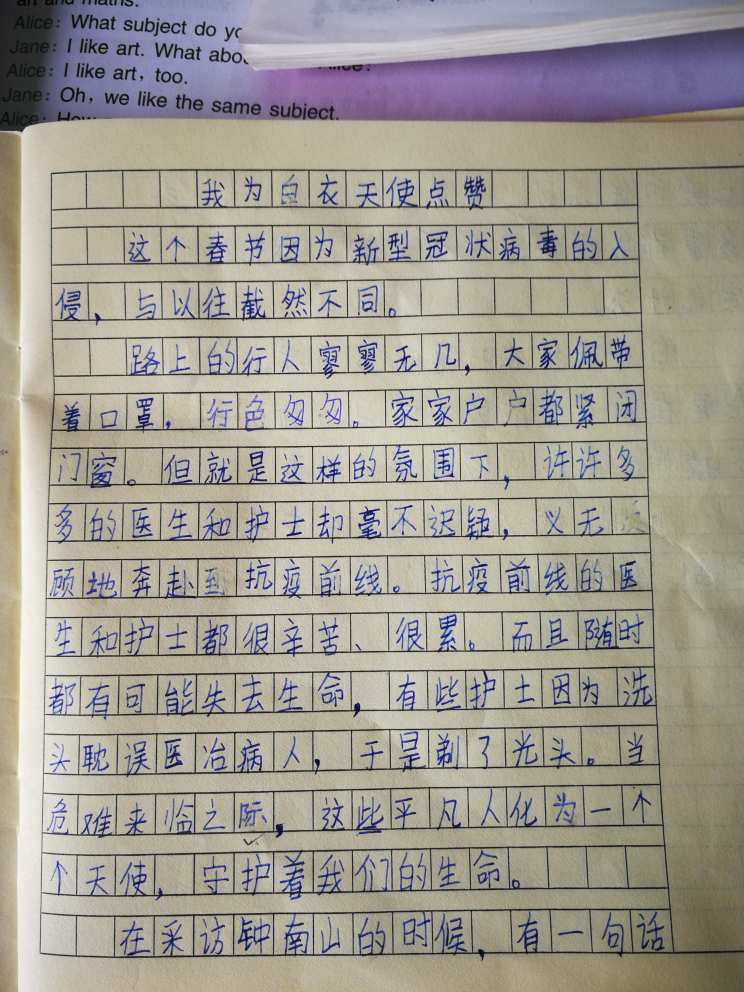 art and maths.
Alice: What subject do yo
Jane: I like art. What abou
Alice: I like art, too.
Jane: Oh, we like the same subject.
Alice:
我为白衣天使点赞
这个春节因为新型冠状病毒的入
侵，与以往截然不同。
路上的行人寥寥无几，大家佩带
着口罩，行色匆匆。家家户户都紧闭
门窗。但就是这样的氛围下，许许多
多的医生和护士却毫不迟疑，义无反
顾地奔赴到抗疫前线。抗疫前线的医
生和护士都很辛苦、很累。而且随时
都有可能失去生命，有些护士因为洗
头耽误医冶病人，于是剃了光头。当
危难来临之际，这些平凡人化为一个
个天使，守护着我们的生命。
在采访钟南山的时候，有一句话